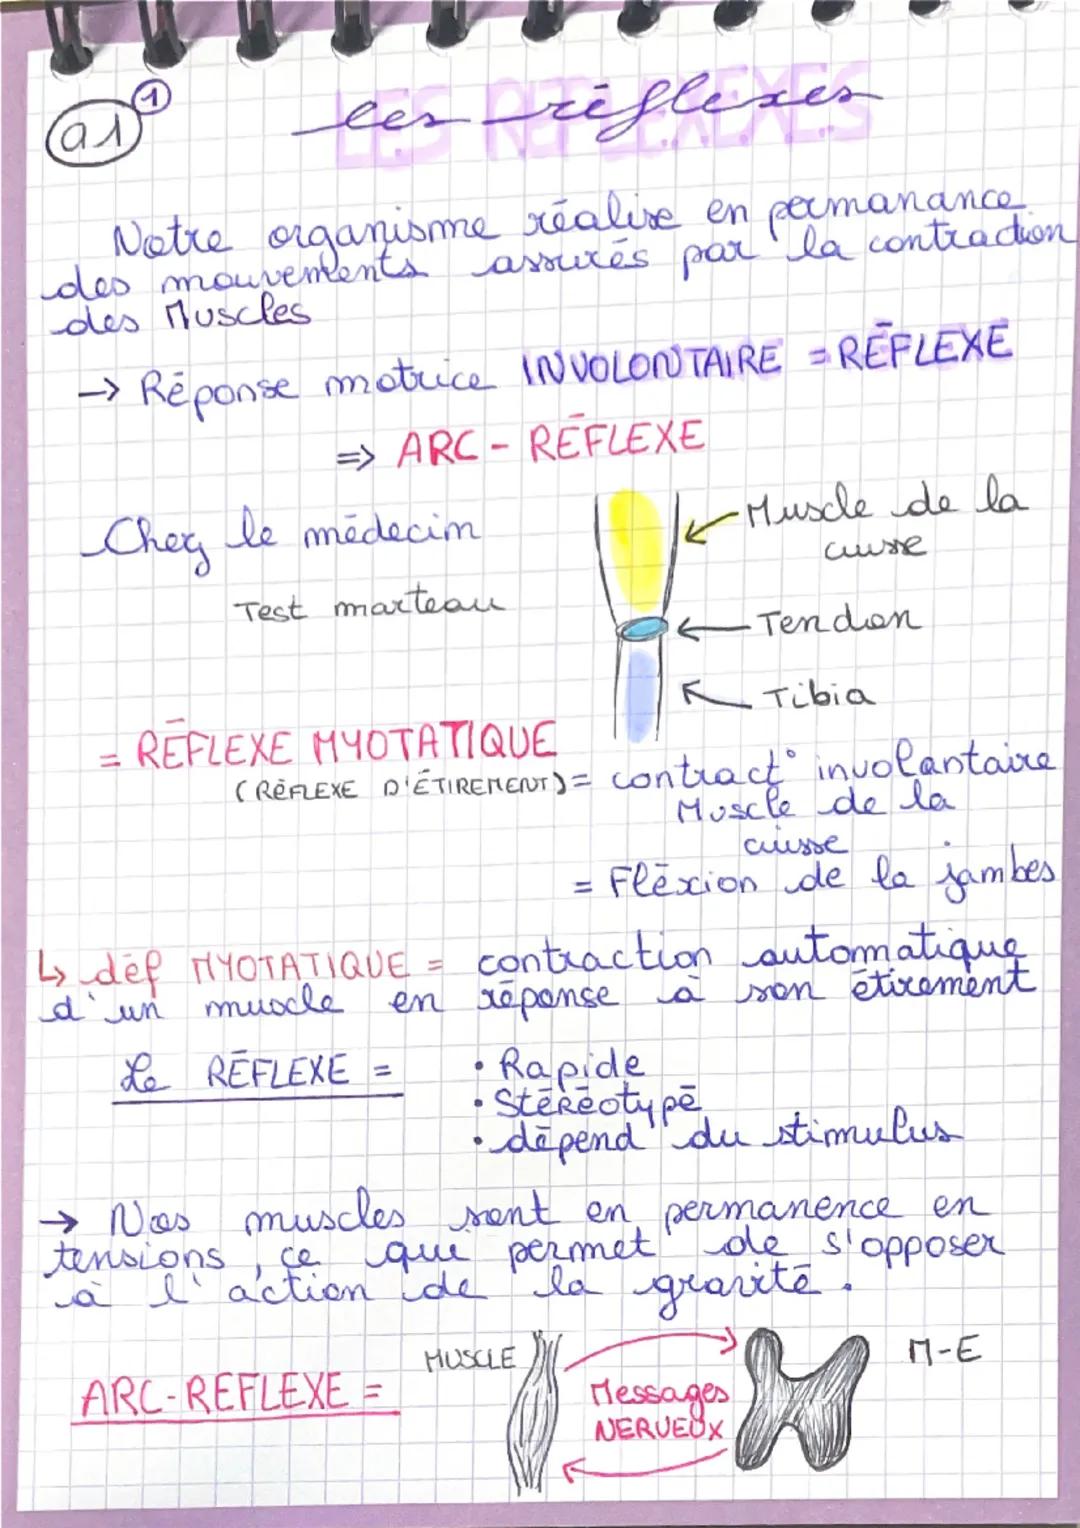 a1
1
Les réflexes
LES REFLEXES
Notre organisme réalise en permanance
des mouvements assurés par la contraction
des Muscles
-> Réponse motrice INVOLONTAIRE = RÉFLEXE
=> ARC - RÉFLEXE
Chez le médecin
Test marteau
Muscle de la
cuisse
Tendon
Tibia
= RÉFLEXE MYOTATIQUE
(RÉFLEXE D'ÉTIREMENT) = contract° involontaire
Muscle de la
cuisse
= Fléxion de la jambes
↳ déf MYOTATIQUE = contraction automatique
d'un muscle en réponse à son étirement
Le RÉFLEXE =
• Rapide
• Stéréotypé
• dépend du stimulus
→ Nos muscles sont en permanence en
tensions, ce qui permet de s'opposer
à l'action de la gravité.
ARC-REFLEXE =
MUSCLE
Messages
NERVEUX
M-E